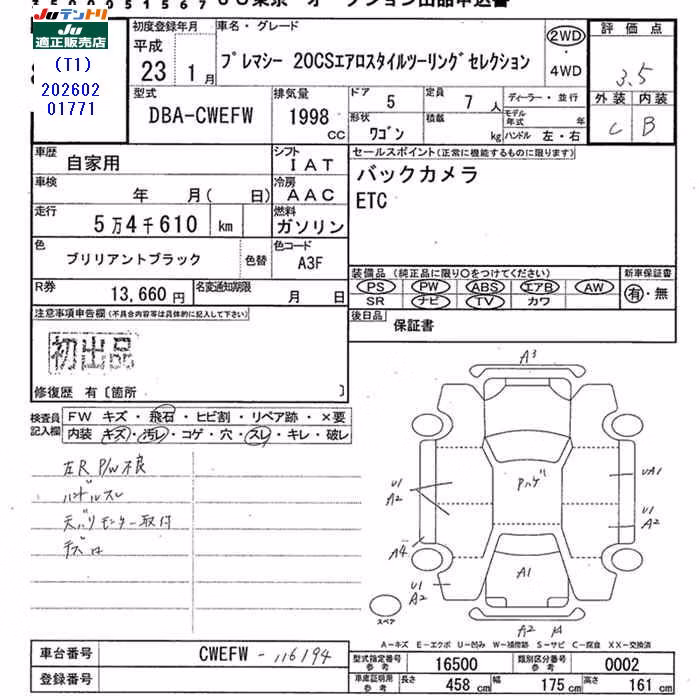 JU テントリ
JU適正販売店
(T1)
202602
01771
初度登録年月
平成
23 1月
車名・グレード
プレマシー 20CSエアロスタイルツーリングセレクション
2WD
・
4WD
評価点
3.5
外装 内装
C B
型式
DBA-CWEFW
排気量
1998
CC
ドア 5
定員 7 人
形状 ワゴン
積載 kg
ディーラー・並行
モデル年式 年
ハンドル 左・右
車歴 自家用
シフト IAT
車検 年 月( 日)
冷房 AAC
走行 5万4千610 km
燃料 ガソリン
色 ブリリアントブラック 色替
色コード A3F
R券 13,660円
名変通知期限 月 日
セールスポイント(正常に機能するものに限ります)
バックカメラ
ETC
装備品(純正品に限り○をつけてください)
PS PW ABS エアB AW
SR ナビ TV カワ
新車保証書
有・無
後日品 保証書
注意事項申告欄(不具合内容等は具体的に記入して下さい)
初出品
修復歴 有〔箇所 〕
検査員記入欄
FW キズ・飛石・ヒビ割・リペア跡・×要
内装 キズ・汚レ・コゲ・穴・スレ・キレ・破レ
左R P/W不良
ハンドルスレ
天バリモニター取付
A3
Pハゲ
U1
A2
UA1
U1
A2
A4
U1
A2
A1
A2
スペア
A-キズ E-エクボ U-凹み W-補修跡 S-サビ C-腐食 XX-交換済
車台番号 CWEFW-116194
登録番号
型式指定番号参考 16500
類別区分番号参考 0002
車庫証明用参考 長さ 458cm 幅 175cm 高さ 161cm